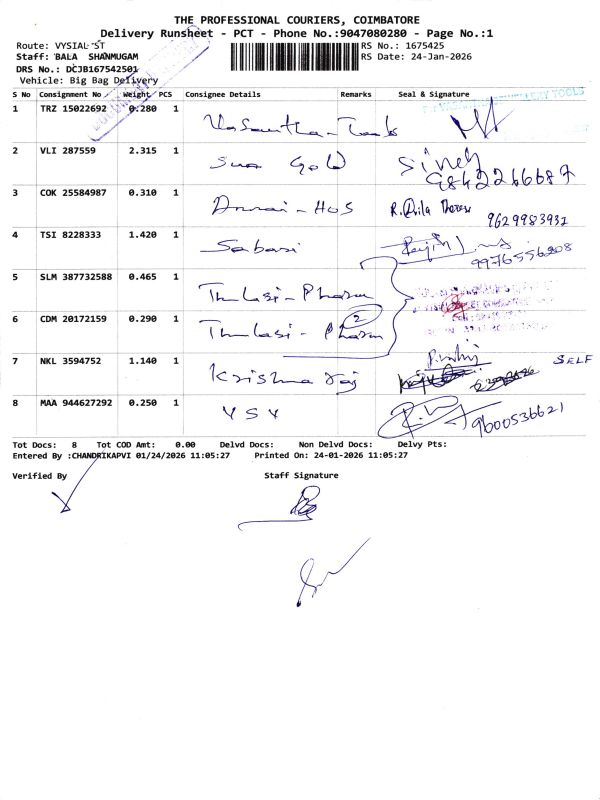 THE PROFESSIONAL COURIERS, COIMBATORE
Delivery Runsheet - PCT - Phone No.:9047080280 - Page No.:1
Route: VYSIAL ST
RS No.: 1675425
Staff: BALA SHANMUGAM
RS Date: 24-Jan-2026
DRS No.: DCJB167542501
Vehicle: Big Bag Delivery
S No Consignment No Weight PCS Consignee Details Remarks Seal & Signature
1 TRZ 15022692 0.280 1 Vasantha-Tools
2 VLI 287559 2.315 1 Sua Gold Singh
9842266687
3 COK 25584987 0.310 1 Annai-HOS R. Theresa
9629983932
4 TSI 8228333 1.420 1 Sabari
9976556208
5 SLM 387732588 0.465 1 Thulasi-Pharm
6 CDM 20172159 0.290 1 Thulasi-Pharm 2
7 NKL 3594752 1.140 1 Krishna raj SELF
8 MAA 944627292 0.250 1 VSV 9600536621
Tot Docs: 8 Tot COD Amt: 0.00 Delvd Docs: Non Delvd Docs: Delvy Pts:
Entered By :CHANDRIKAPVI 01/24/2026 11:05:27 Printed On: 24-01-2026 11:05:27
Verified By Staff Signature